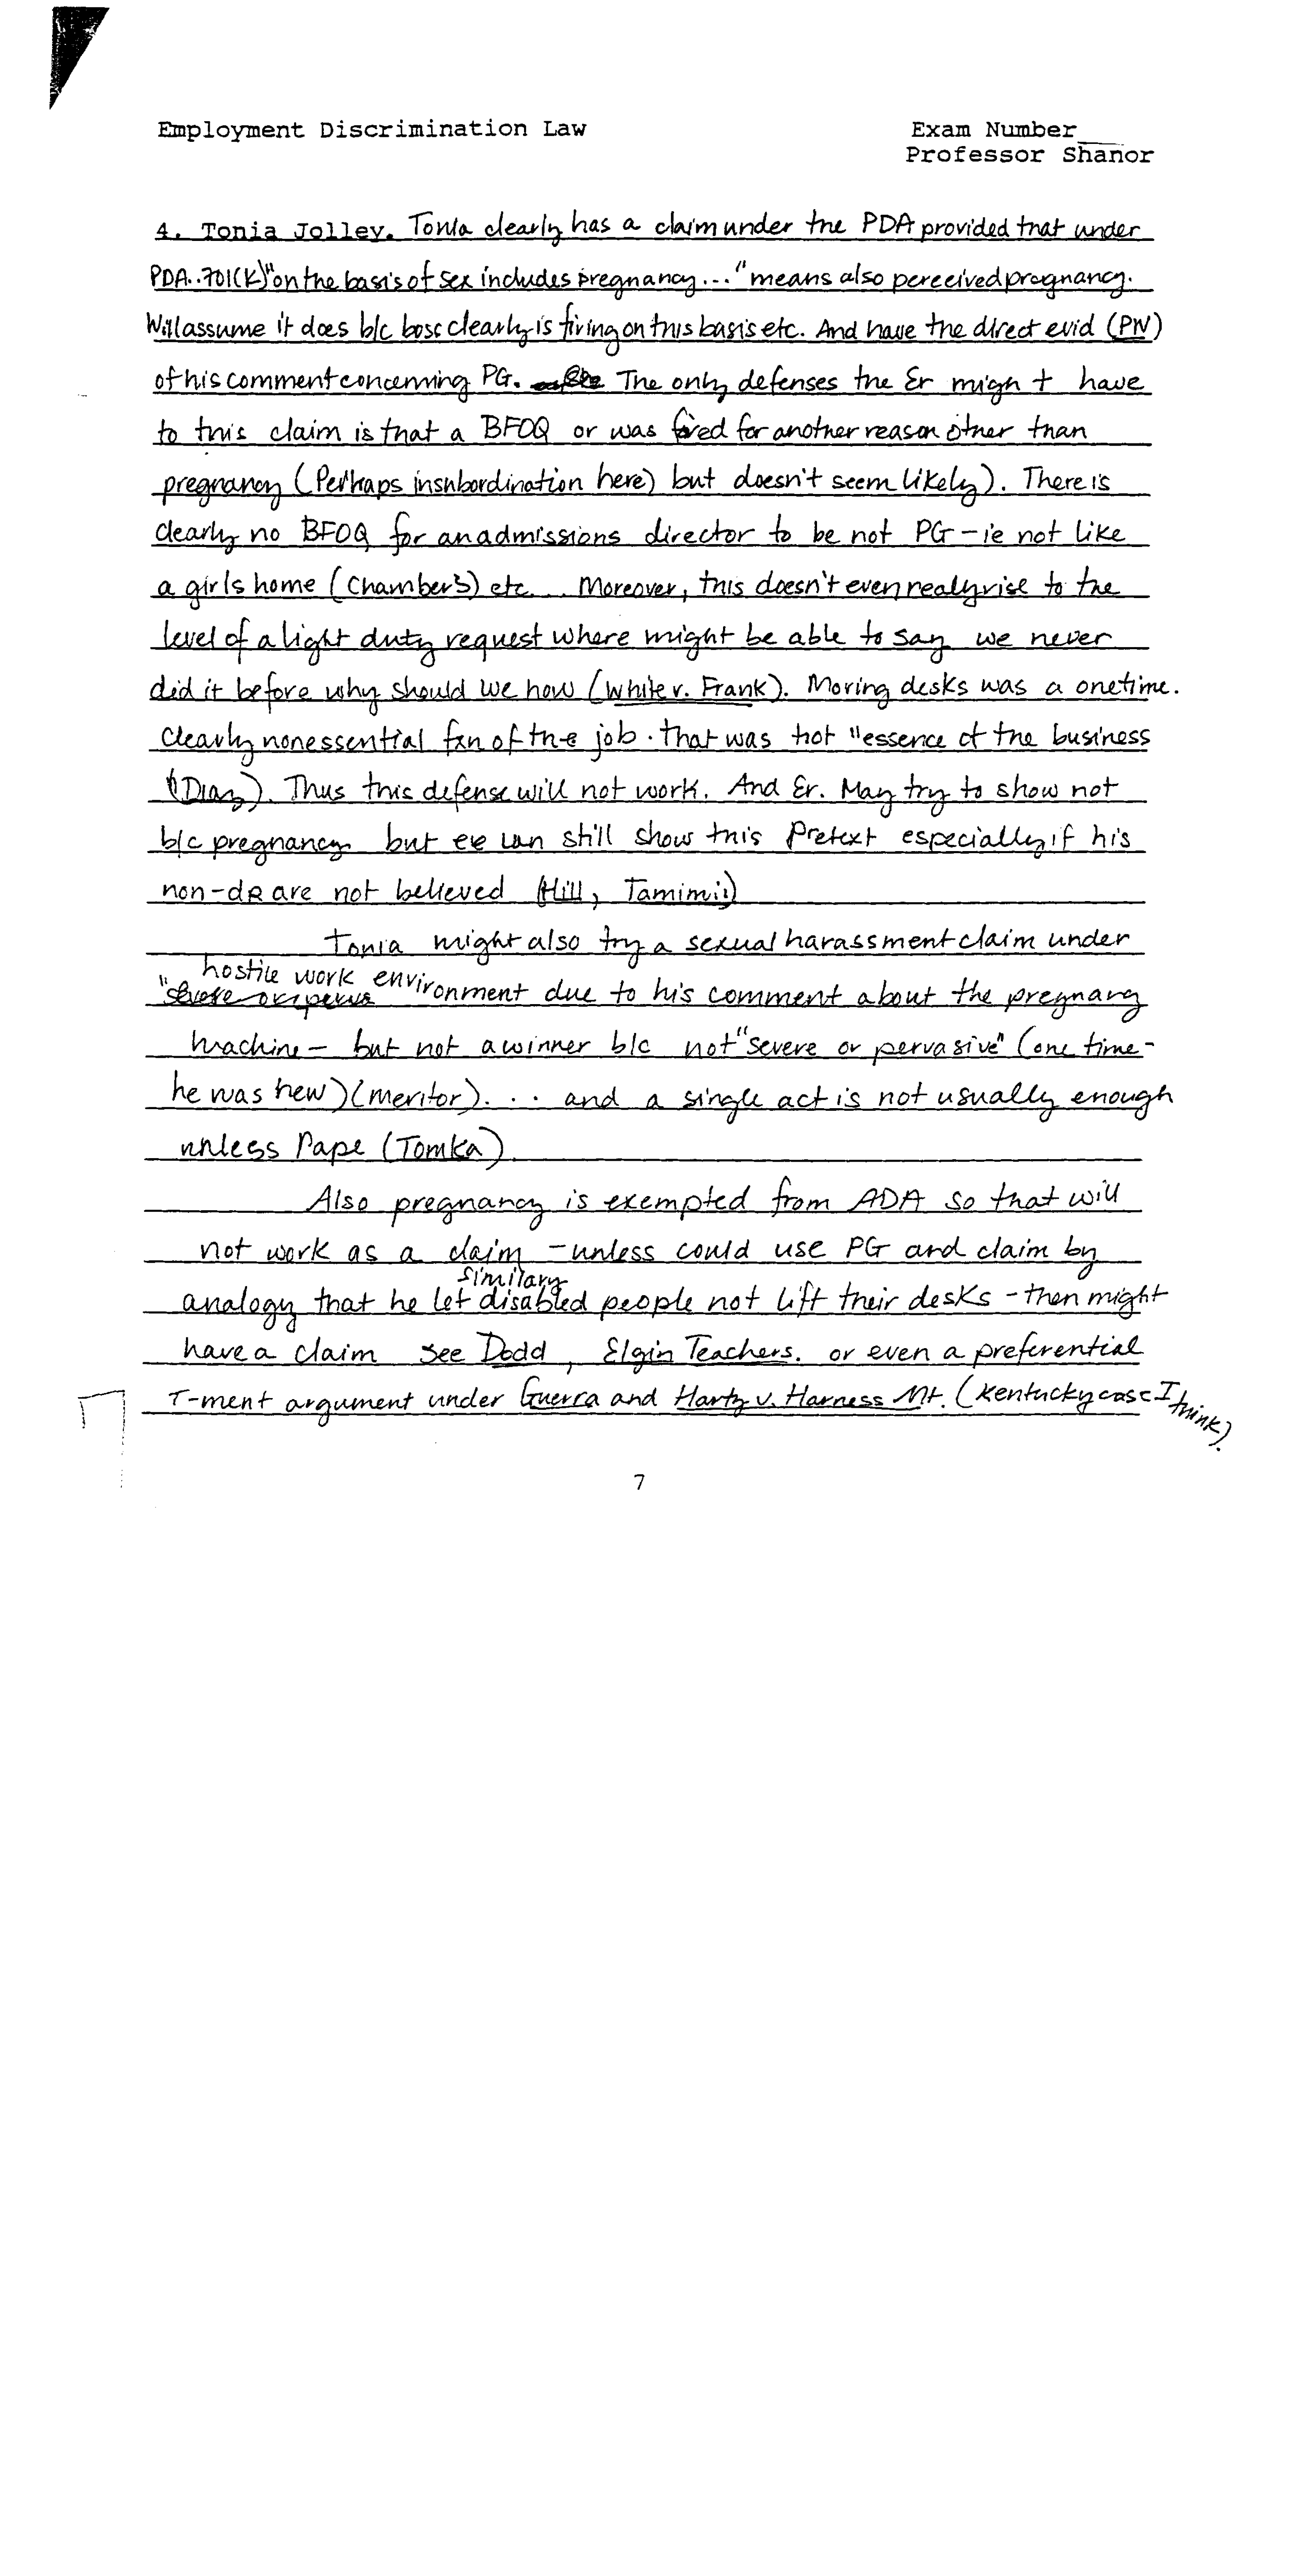 Employment Discrimination Law Exam Number
Professor Shanor
4. Tonia Jolley. Tonia clearly has a claim under the PDA provided that under
PDA..701(k)"on the basis of sex includes pregnancy..." means also perceived pregnancy.
Will assume it does b/c boss clearly is firing on this basis etc. And have the direct evid (PW)
of his comment concerning PG. The only defenses the Er might have
to this claim is that a BFOQ or was fired for another reason other than
pregnancy (Perhaps insubordination here) but doesn't seem likely). There is
clearly no BFOQ for an admissions director to be not PG - ie not like
a girls home (Chambers) etc... Moreover, this doesn't even really rise to the
level of a light duty request where might be able to say we never
did it before why should we now (White v. Frank). Moving desks was a one time.
Clearly nonessential fxn of the job. that was not "essence of the business
(Diaz). Thus this defense will not work. And Er. May try to show not
b/c pregnancy but ee can still show this Pretext especially if his
non-dR are not believed (Hill, Tamimi)
Tonia might also try a sexual harassment claim under
"hostile work environment due to his comment about the pregnancy
machine - but not a winner b/c not "severe or pervasive" (one time -
he was new) (meritor)... and a single act is not usually enough
unless Rape (Tomka)
Also pregnancy is exempted from ADA so that will
not work as a claim - unless could use PG and claim by
analogy that he let similary disabled people not lift their desks - then might
have a claim see Dodd, Elgin Teachers. or even a preferential
T-ment argument under Guerra and Harty v. Harness Mt. (Kentucky case I think).
7